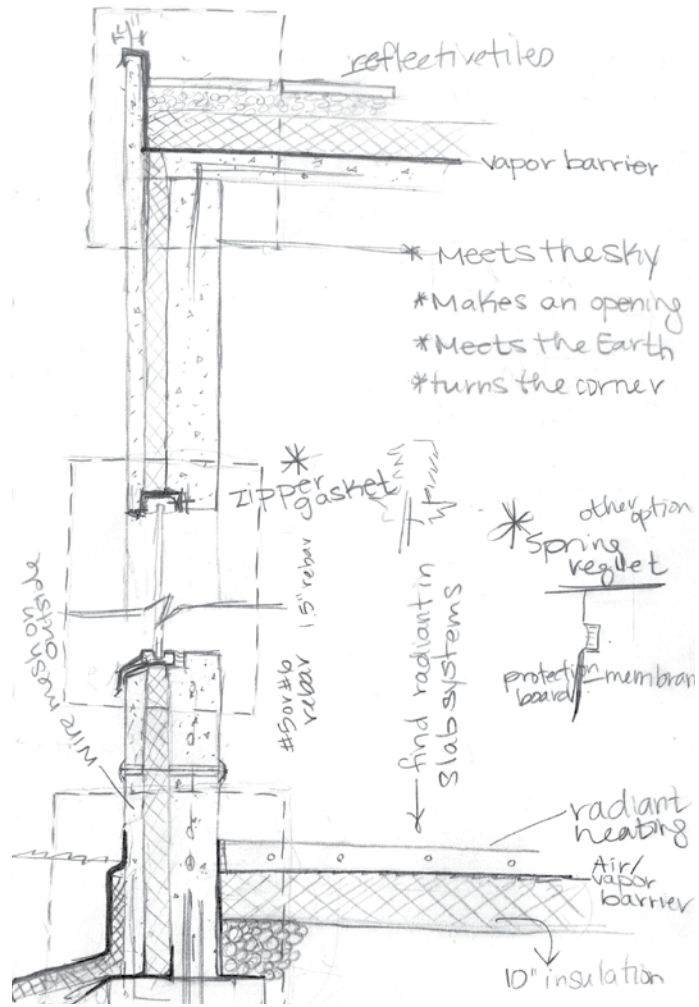 reflective tiles
vapor barrier
* Meets the sky
* Makes an opening
* Meets the Earth
* turns the corner
* zipper
gasket
other option
* Spring
reglet
protection
board
membran
Wire mesh on
outside
#5 or #6
rebar
15" rebar
find radiant in
slab systems
radiant
heating
Air/
vapor
barrier
10" insulation